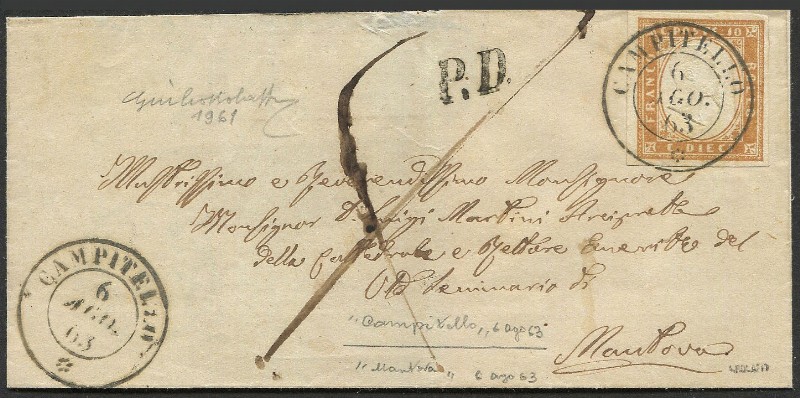 P.D.
CAMPITELLO
6
AGO.
63
FRANCO
C. DIECI
1961
Illustrissimo e Reverendissimo Monsignore
Monsignor D. Luigi Martini Arciprete
della Cattedrale e Rettore Emerito del
Seminario di
Mantova
"Campitello" 6 ago 63
"Mantova" 6 ago 63
CAMPITELLO
6
AGO.
63